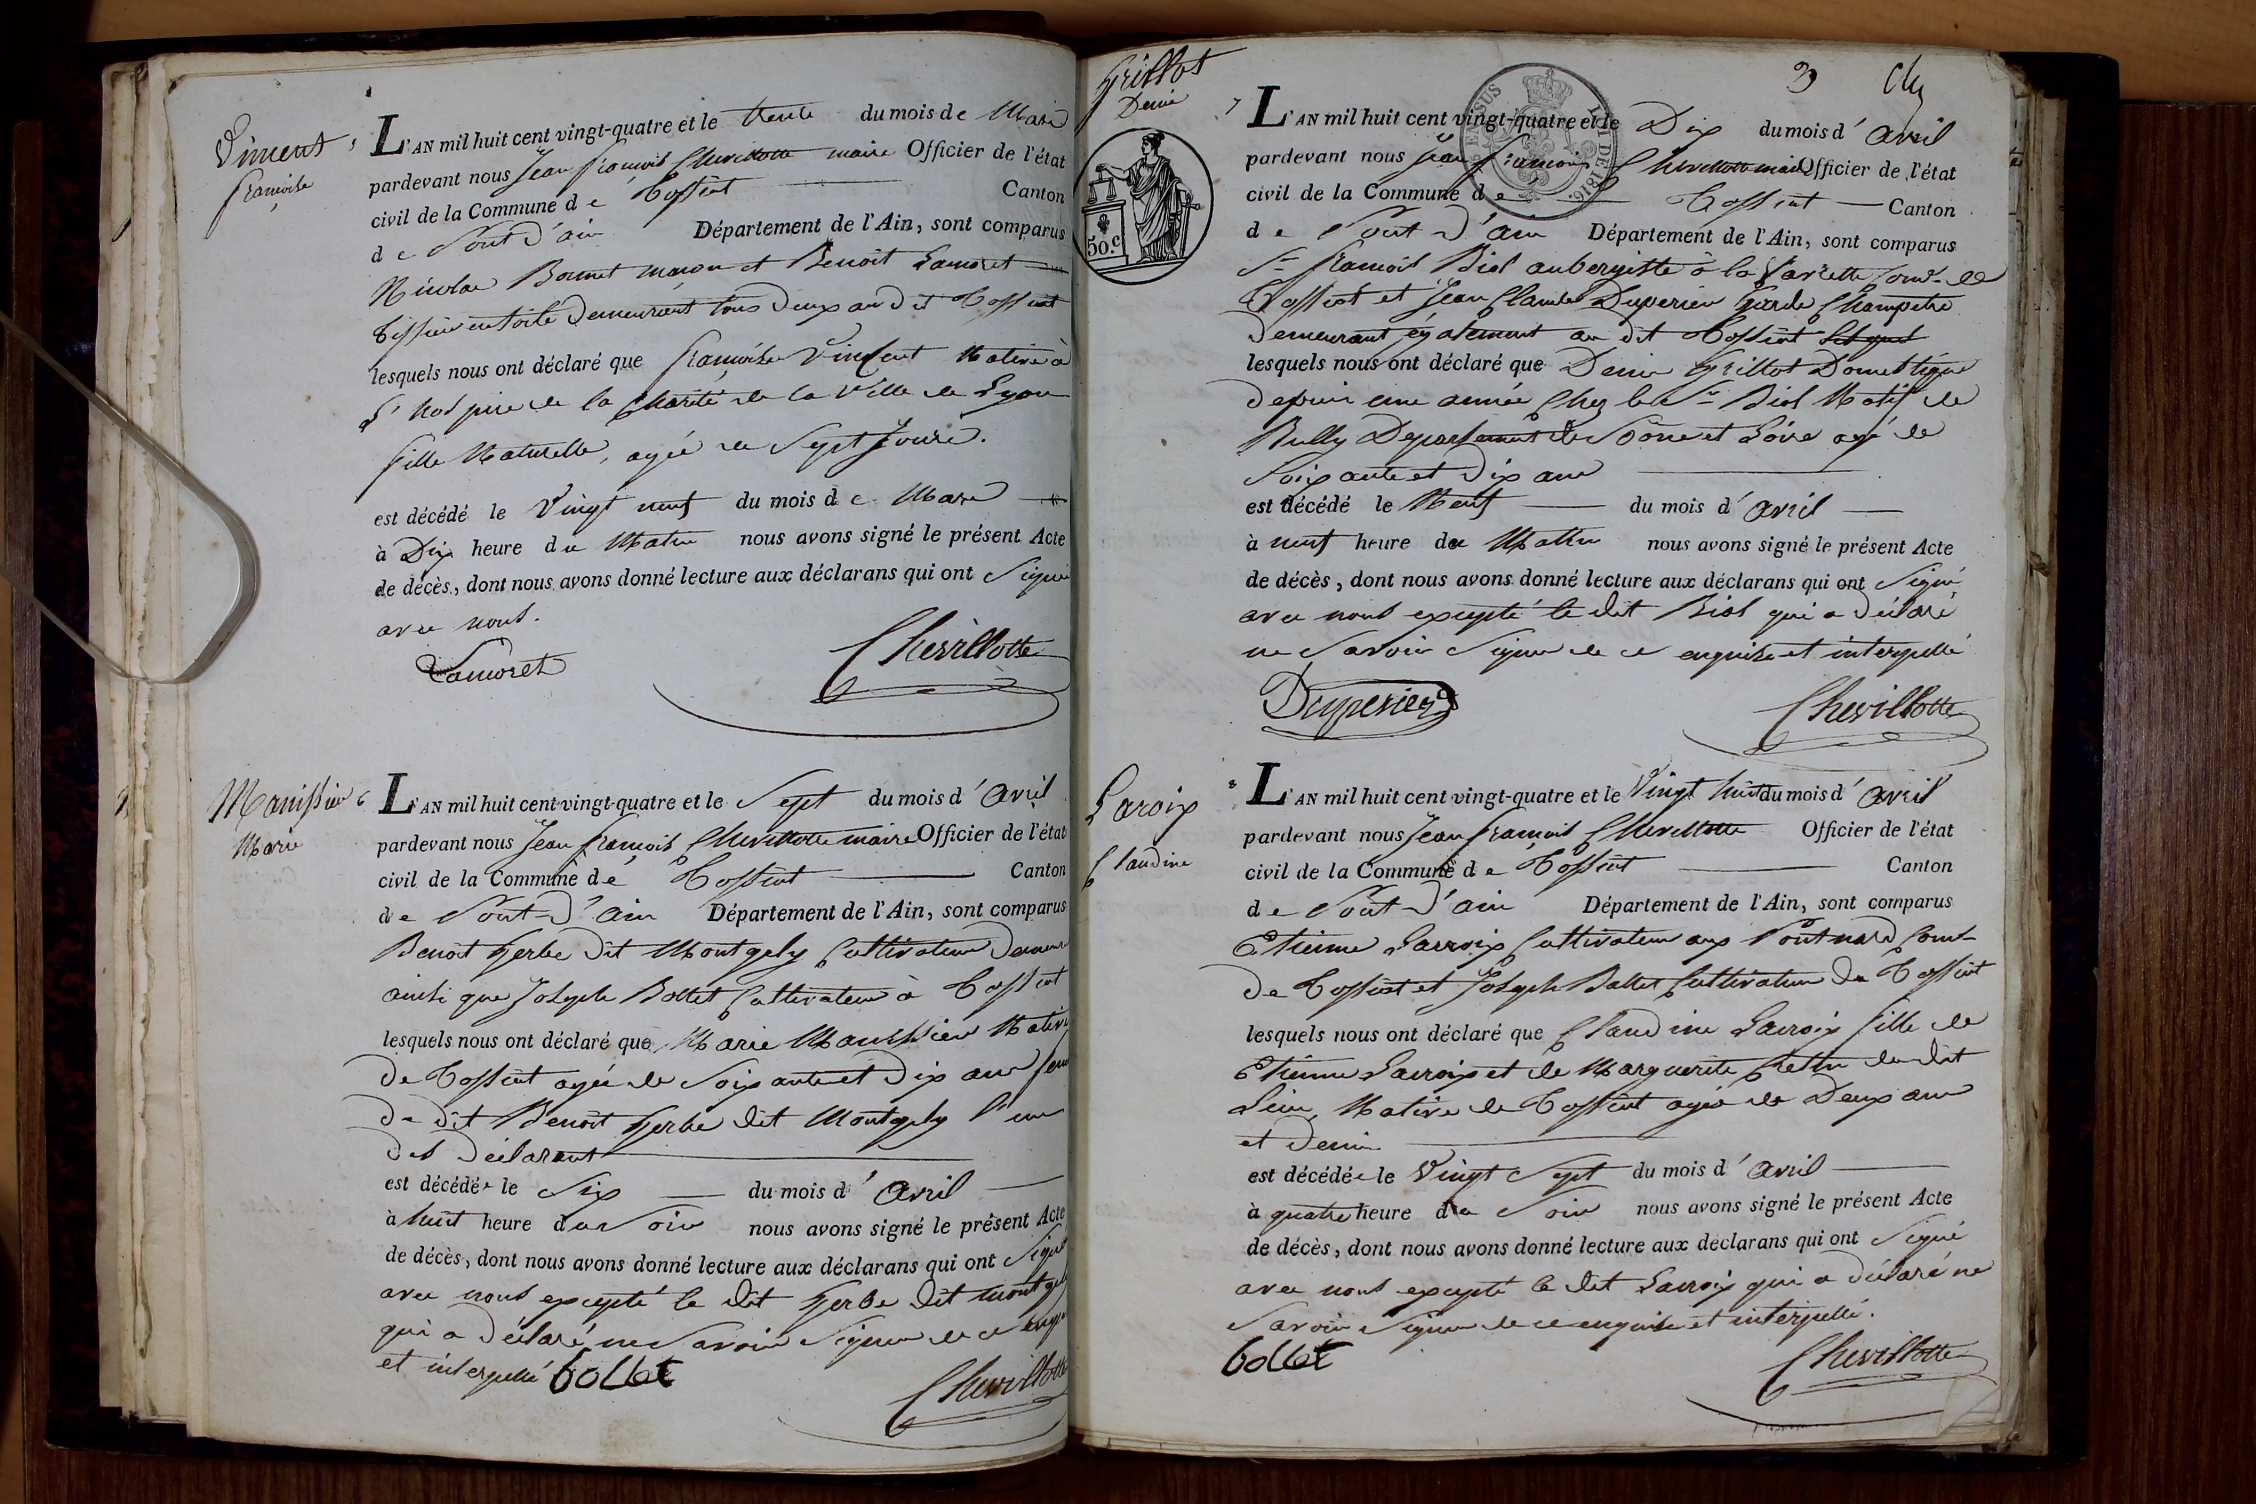 Vincent
françoise
5
L'AN mil huit cent vingt-quatre et le trente du mois de Mars
pardevant nous Jean françois Chevillotte maire Officier de l'état
civil de la Commune de Tossiat Canton
de Pont d'ain Département de l'Ain, sont comparus
Nicolas Bonnet maçon et Benoit Lamoret
tissier en toile demeurant tous deux au dit Tossiat
lesquels nous ont déclaré que françoise Vincent Native à
L'hospice de la Charité de la Ville de Lyon
fille Naturelle, agée de Sept Jours.
est décédé le Vingt neuf du mois de Mars
à Dix heure du Matin nous avons signé le présent Acte
de décès, dont nous avons donné lecture aux déclarans qui ont Signé
avec nous.
Lamoret Chevillotte
Manissier
Marie
6
L'AN mil huit cent vingt-quatre et le Sept du mois d'avril
pardevant nous Jean françois Chevillotte maire Officier de l'état
civil de la Commune de Tossiat Canton
de Pont-d'ain Département de l'Ain, sont comparus
Benoit Gerbe dit Montgely Cultivateur
ainsi que Joseph Bollet Cultivateur à Tossiat
lesquels nous ont déclaré que Marie Manissier Native
de Tossiat agée de Soixante et dix ans
du dit Benoit Gerbe dit Montgely l'un
des déclarant
est décédée le Six du mois d'avril
à huit heure du Soir nous avons signé le présent Acte
de décès, dont nous avons donné lecture aux déclarans qui ont Signé
avec nous excepté le dit Gerbe dit
qui a déclaré ne Savoir Signer de ce
et interpellé bollet Chevillotte
Grillot
Denis
50.c
3
7
L'AN mil huit cent vingt-quatre et le Dix du mois d'avril
pardevant nous Jean françois Chevillotte maire Officier de l'état
civil de la Commune de Tossiat Canton
de Pont-d'ain Département de l'Ain, sont comparus
Sr françois Biol aubergiste à la de
Tossiat et Jean Claude Duperier Garde Champetre
demeurant également au dit Tossiat
lesquels nous ont déclaré que Denis Grillot Domestique
depuis une année Chez le Sr Biol Natif de
Rully Departement de Sône et Loire agé de
Soixante et dix ans
est décédé le Neuf du mois d'avril
à neuf heure du Matin nous avons signé le présent Acte
de décès, dont nous avons donné lecture aux déclarans qui ont Signé
avec nous excepté le dit Biol qui a déclaré
ne Savoir Signer de ce enquise et interpellé
Duperier Chevillotte
Laroix
Claudine
8
L'AN mil huit cent vingt-quatre et le Vingt huit du mois d'avril
pardevant nous Jean françois Chevillotte Officier de l'état
civil de la Commune de Tossiat Canton
de Pont-d'ain Département de l'Ain, sont comparus
Etienne Lacroix Cultivateur aux
de Tossiat et Joseph Bollet Cultivateur de Tossiat
lesquels nous ont déclaré que Claudine Lacroix fille de
Etienne Lacroix et de Marguerite du dit
Lieu, Native de Tossiat agée de Deux ans
et Demi
est décédée le Vingt Sept du mois d'avril
à quatre heure du Soir nous avons signé le présent Acte
de décès, dont nous avons donné lecture aux déclarans qui ont Signé
avec nous excepté le dit Lacroix qui a déclaré ne
Savoir Signer de ce enquise et interpellé.
bollet Chevillotte